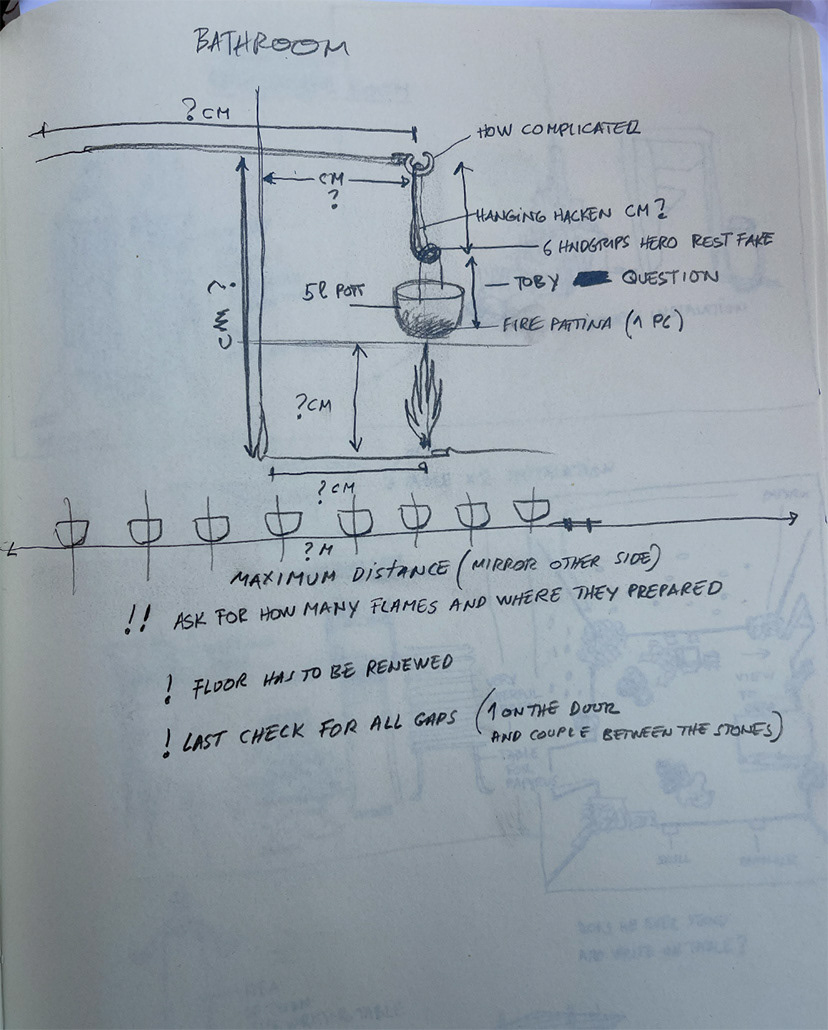 BATHROOM
? CM
HOW COMPLICATED
CM
?
HANGING HACKEN CM?
6 HNDGRIPS HERO REST FAKE
CM ?
5l POTT
TOBY QUESTION
FIRE PATTINA (1 PC)
?CM
?CM
?M
MAXIMUM DISTANCE (MIRROR OTHER SIDE)
!! ASK FOR HOW MANY FLAMES AND WHERE THEY PREPARED
! FLOOR HAS TO BE RENEWED
! LAST CHECK FOR ALL GAPS (1 ON THE DOOR
AND COUPLE BETWEEN THE STONES)